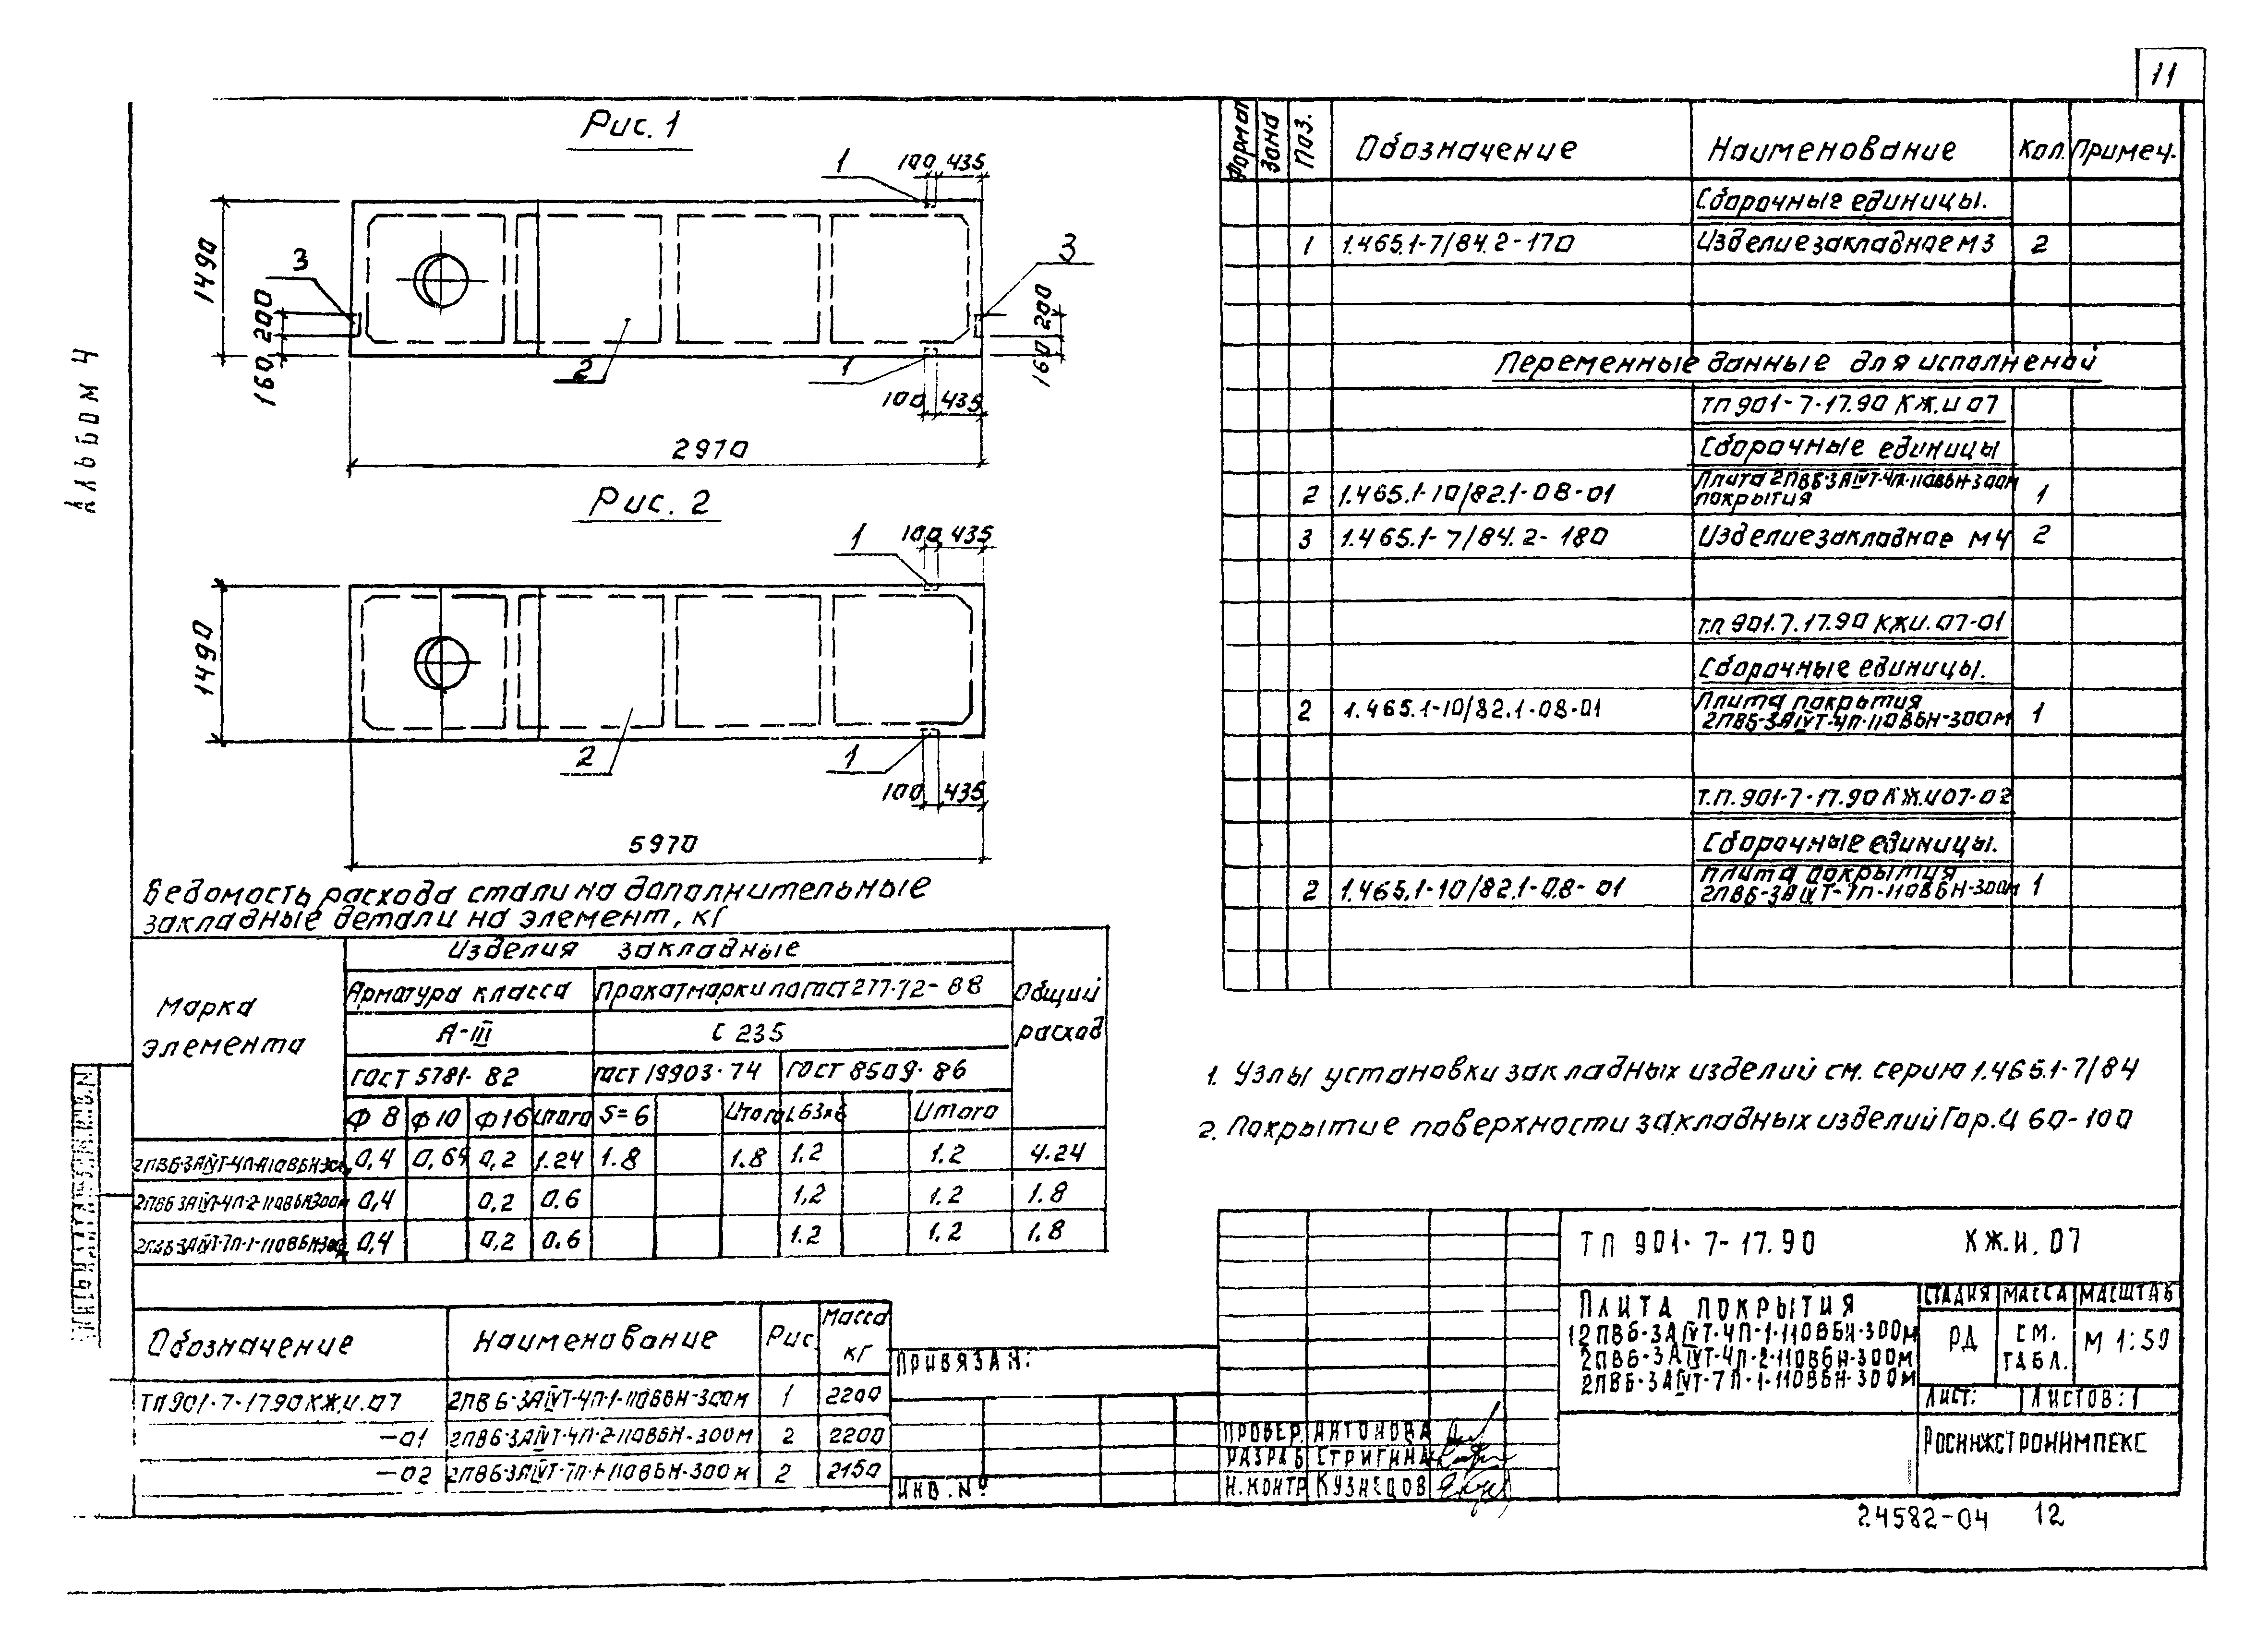 11
Альбом 4
Рис. 1
1
100 435
1490
3
200
160
3
200
160
2
1
100 435
2970
Рис. 2
1
100 435
1490
2
1
100 435
5970
Ведомость расхода стали на дополнительные
закладные детали на элемент, кг
Марка элемента
Изделия закладные
Общий расход
Арматура класса
Прокат марки по гост 277.72-88
А-III
С 235
ГОСТ 5781-82
гост 19903-74
ГОСТ 8509-86
Ф 8 Ф10 Ф16 Итого S=6 Итого L63×6 Итого
2ПВ6-3АIVТ-4П-1-110ВБН-300 0,4 0,64 0,2 1.24 1.8 1.8 1.2 1.2 4.24
2ПВ6-3АIVТ-4П-2-110ВБН-300м 0,4 0,2 0.6 1,2 1.2 1.8
2ПВ6-3АIVТ-7П-1-110ВБН-300 0,4 0,2 0.6 1.2 1.2 1.8
Обозначение Наименование Рис. Масса кг
ТП 901-7-17.90 КЖ.И.07 2ПВ6-3АIVТ-4П-1-110ВБН-300м 1 2200
-01 2ПВ6-3АIVТ-4П-2-110ВБН-300м 2 2200
-02 2ПВ6-3АIVТ-7П-1-110ВБН-300м 2 2150
ПРИВЯЗАН:
ИНВ. №
Формат Зона Поз. Обозначение Наименование Кол. Примеч.
Сборочные единицы.
1 1.465.1-7/84.2-170 Изделие закладное М3 2
Переменные данные для исполненой
ТП 901-7-17.90 КЖ.И 07
Сборочные единицы
2 1.465.1-10/82.1-08-01 Плита 2ПВ6-3АIVТ-4П-110ВБН-300м покрытия 1
3 1.465.1-7/84.2-180 Изделие закладное М4 2
т.п 901.7.17.90 КЖИ.07-01
Сборочные единицы.
2 1.465.1-10/82.1-08-01 Плита покрытия 2ПВ6-3АIVТ-4П-110ВБН-300м 1
Т.П. 901-7-17.90 КЖ.И07-02
Сборочные единицы.
2 1.465.1-10/82.1-08-01 Плита покрытия 2ПВ6-3АIVТ-7П-110ВБН-300м 1
1. Узлы установки закладных изделий см. серию 1.465.1-7/84
2. Покрытие поверхности закладных изделий Гор.Ц 60-100
ТП 901-7-17.90 КЖ.И.07
ПЛИТА ПОКРЫТИЯ
12ПВ6-3АIVТ-4П-1-110ВБН-300м
2ПВ6-3АIVТ-4П-2-110ВБН-300м
2ПВ6-3АIVТ-7П-1-110ВБН-300м
СТАДИЯ МАССА МАСШТАБ
РД СМ. ТАБЛ. М 1:50
ЛИСТ: ЛИСТОВ: 1
РОСИНЖСТРОЙИМПЕКС
ПРОВЕР. АНТОНОВА
РАЗРАБ СТРИГИНА
Н.КОНТР КУЗНЕЦОВ
24582-04 12